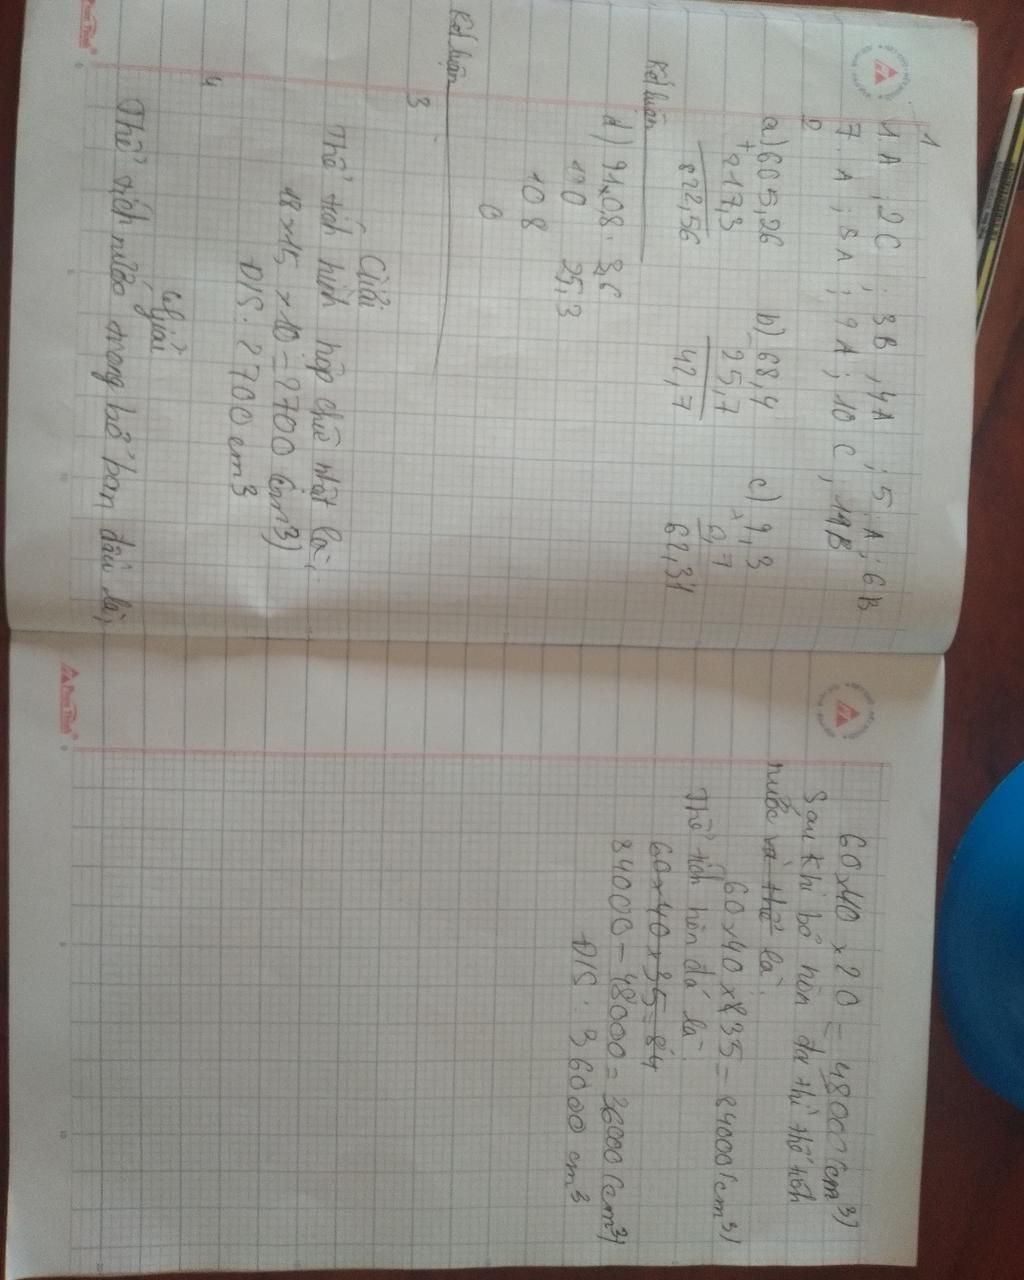 1
1.A ; 2C ; 3B ; 4A ; 5.A ; 6B
7.A ; 8A ; 9A ; 10 C ; 11B
2
a) 605,26 b) 68,4 c) 9,3
+ 217,3 - 25,7 × 6,7
822,56 42,7 62,31
Kết luận
d) 91,08 : 3,6
190 25,3
108
0
Kết luận
3
Giải
Thể tích hình hộp chữ nhật là:
18 × 15 × 10 = 2700 (cm3)
Đ/S: 2700 cm3
4
Giải
Thể tích nước trong hồ ban đầu là:
60 × 40 × 20 = 48000 (cm3)
Sau khi bỏ hòn đá thì thể tích
nước và thể là:
60 × 40 × 35 = 84000 (cm3)
Thể tích hòn đá là
60 × 40 × 35 = 84
84000 - 48000 = 36000 (cm3)
Đ/S: 36000 cm3